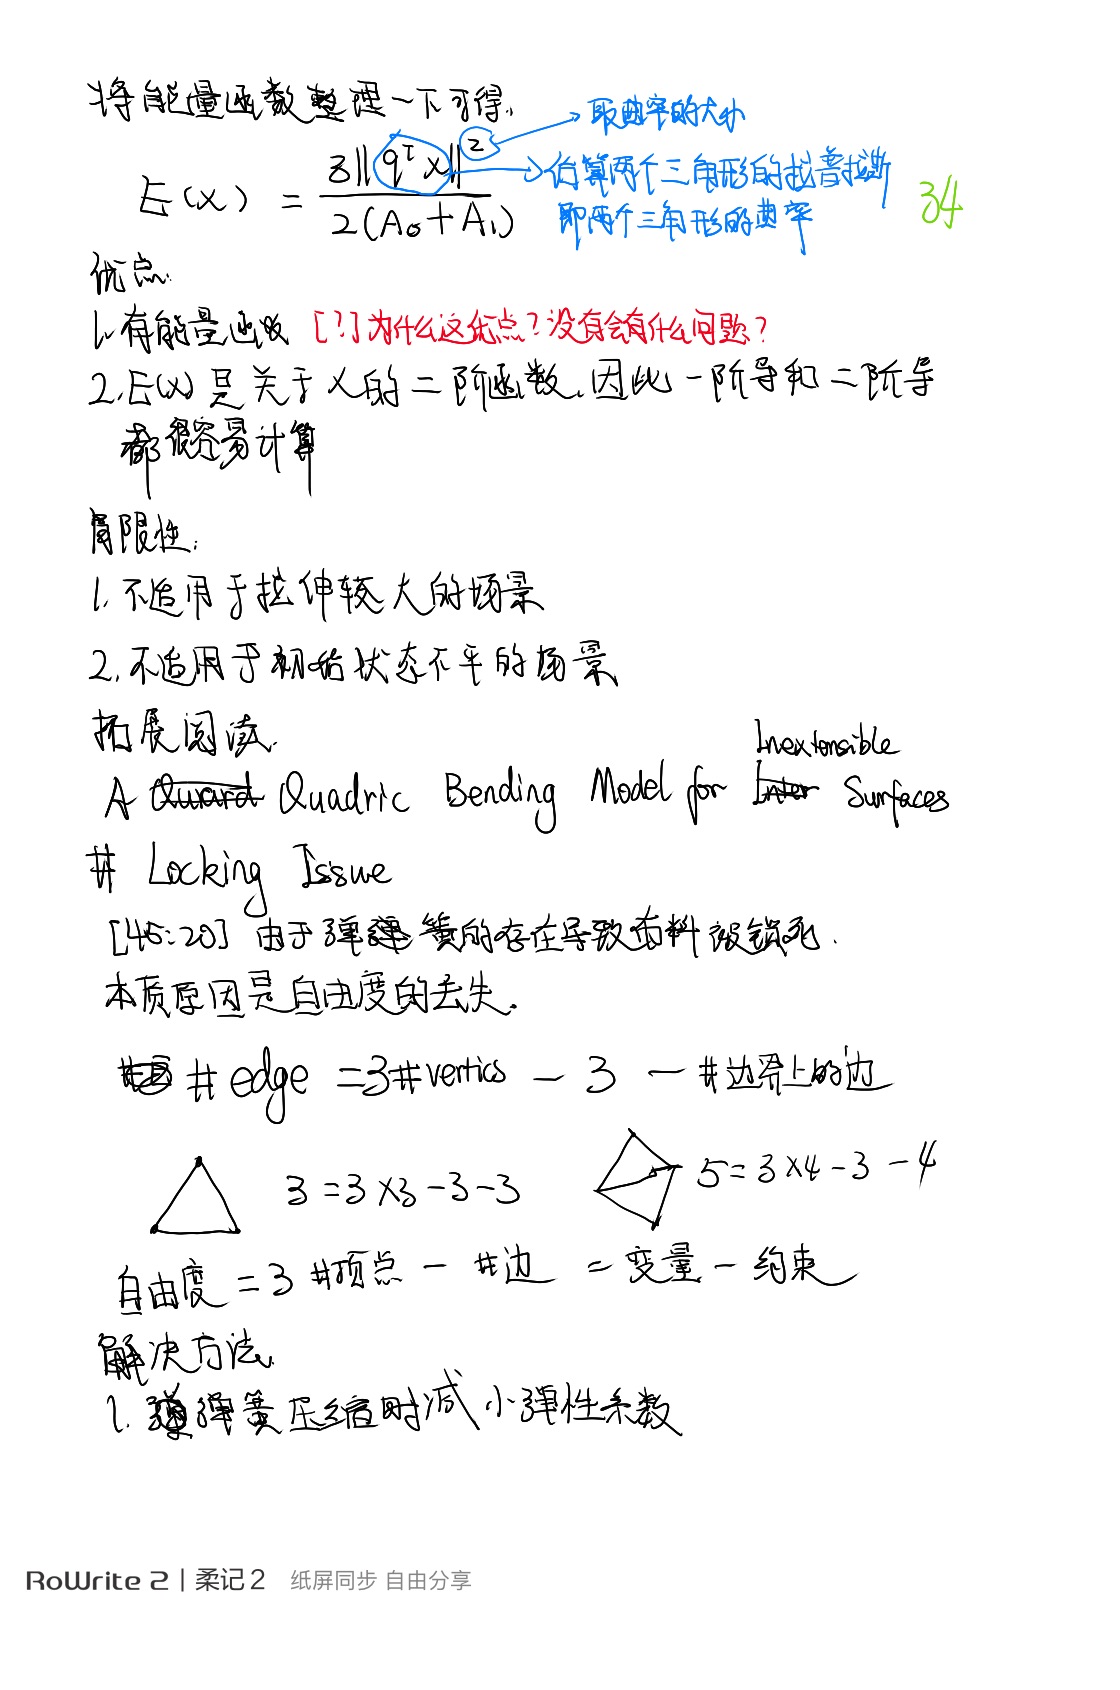 将能量函数整理一下可得:
E(x) = 3||qᵀx||² / 2(A₀+A₁)
取曲率的大小
估算两个三角形的拉普拉斯
即两个三角形的曲率
34
优点:
1. 有能量函数 [?]为什么这优点?没有会有什么问题?
2. E(x) 是关于 x 的二阶函数,因此一阶导和二阶导
都很容易计算
局限性:
1. 不适用于拉伸较大的场景
2. 不适用于初始状态不平的场景
拓展阅读:
Inextensible
A Quadric Bending Model for Surfaces
# Locking Issue
[45:20] 由于弹簧的存在导致布料被锁死.
本质原因是自由度的丢失.
# edge = 3#vertics - 3 - #边界上的边
3 = 3×3-3-3
5 = 3×4-3-4
自由度 = 3 #顶点 - #边 = 变量 - 约束
解决方法:
1. 弹簧压缩时减小弹性系数
RoWrite 2 | 柔记 2 纸屏同步 自由分享